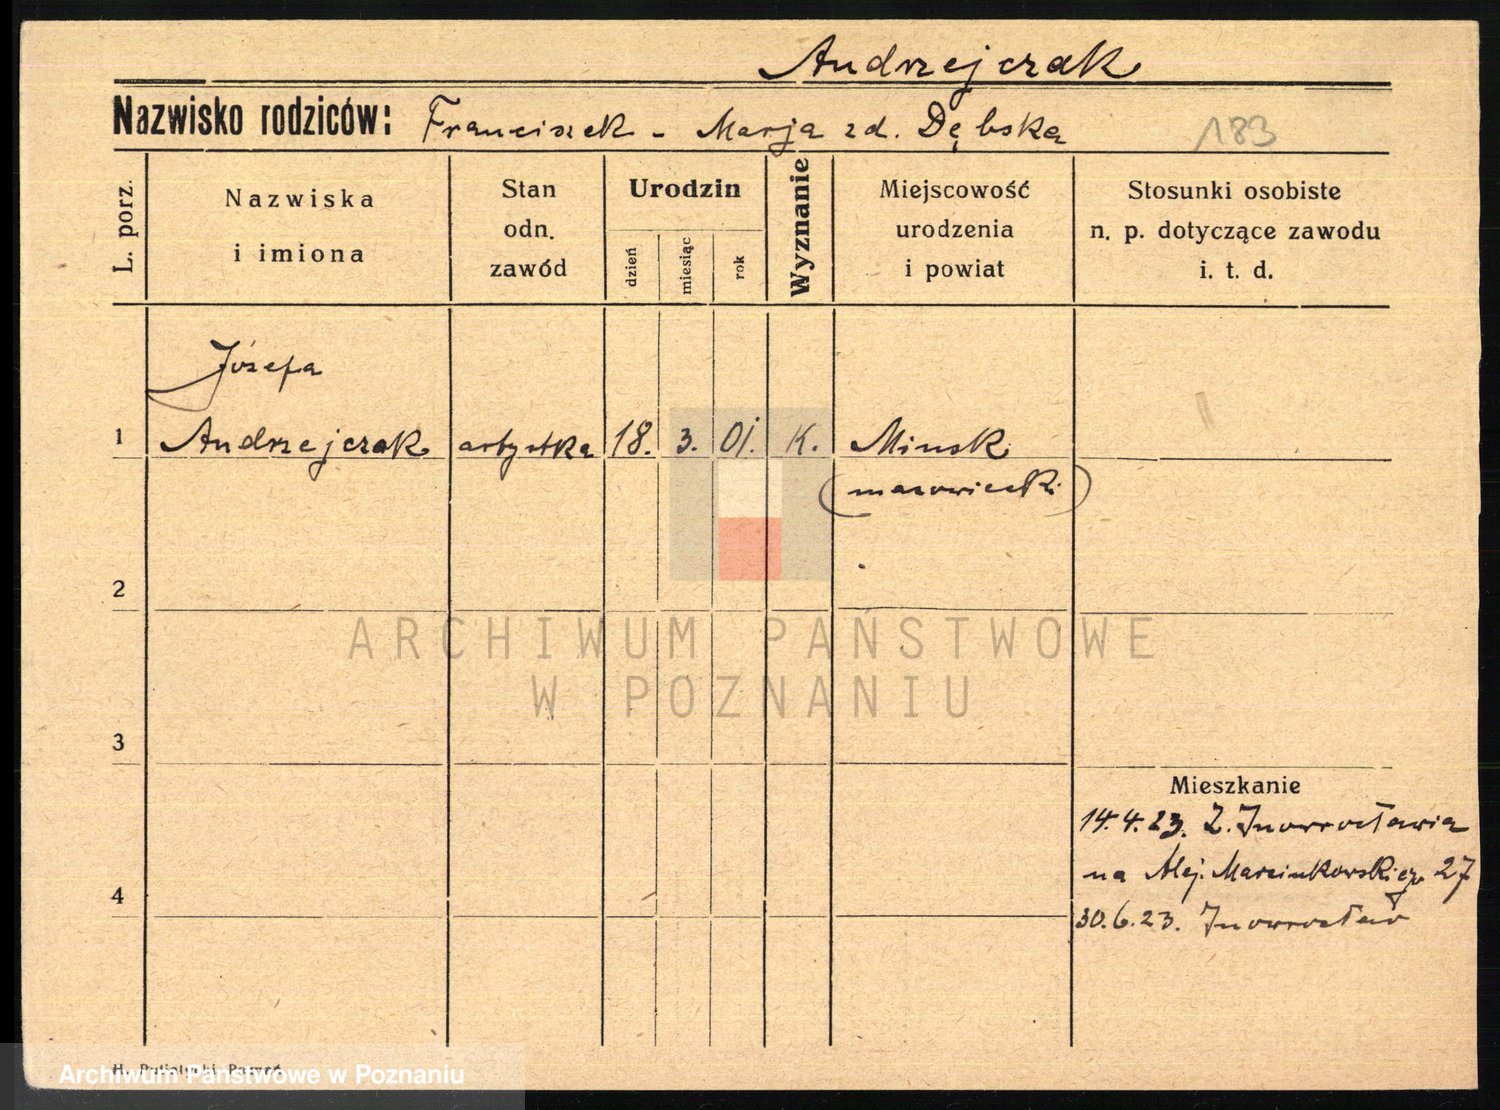 Andrzejczak
Nazwisko rodziców: Franciszek - Marja zd. Dębska
183
L. porz.
Nazwiska
i imiona
Stan
odn.
zawód
Urodzin
dzień
miesiąc
rok
Wyznanie
Miejscowość
urodzenia
i powiat
Stosunki osobiste
n. p. dotyczące zawodu
i. t. d.
Józefa
1 Andrzejczak artystka 18. 3. 01. K. Minsk
(mazowiecki)
2
ARCHIWUM PAŃSTWOWE
W POZNANIU
3
Mieszkanie
14.4.23. Z. Inowrocławia
na Alej. Marcinkowskiego 27
4
30.6.23. Inowrocław
Archiwum Państwowe w Poznaniu